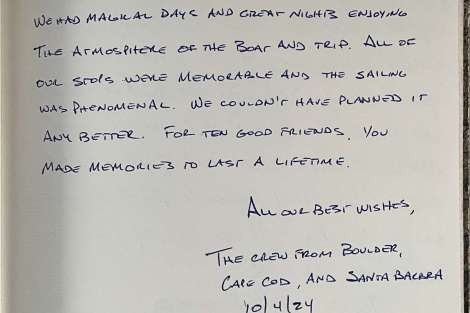 WE HAD MAGICAL DAYS AND GREAT NIGHTS ENJOYING
THE ATMOSPHERE OF THE BOAT AND TRIP. ALL OF
OUR STOPS WERE MEMORABLE AND THE SAILING
WAS PHENOMENAL. WE COULDN'T HAVE PLANNED IT
ANY BETTER. FOR TEN GOOD FRIENDS, YOU
MADE MEMORIES TO LAST A LIFETIME.
ALL OUR BEST WISHES,
THE CREW FROM BOULDER,
CAPE COD, AND SANTA BARBARA
10/4/24